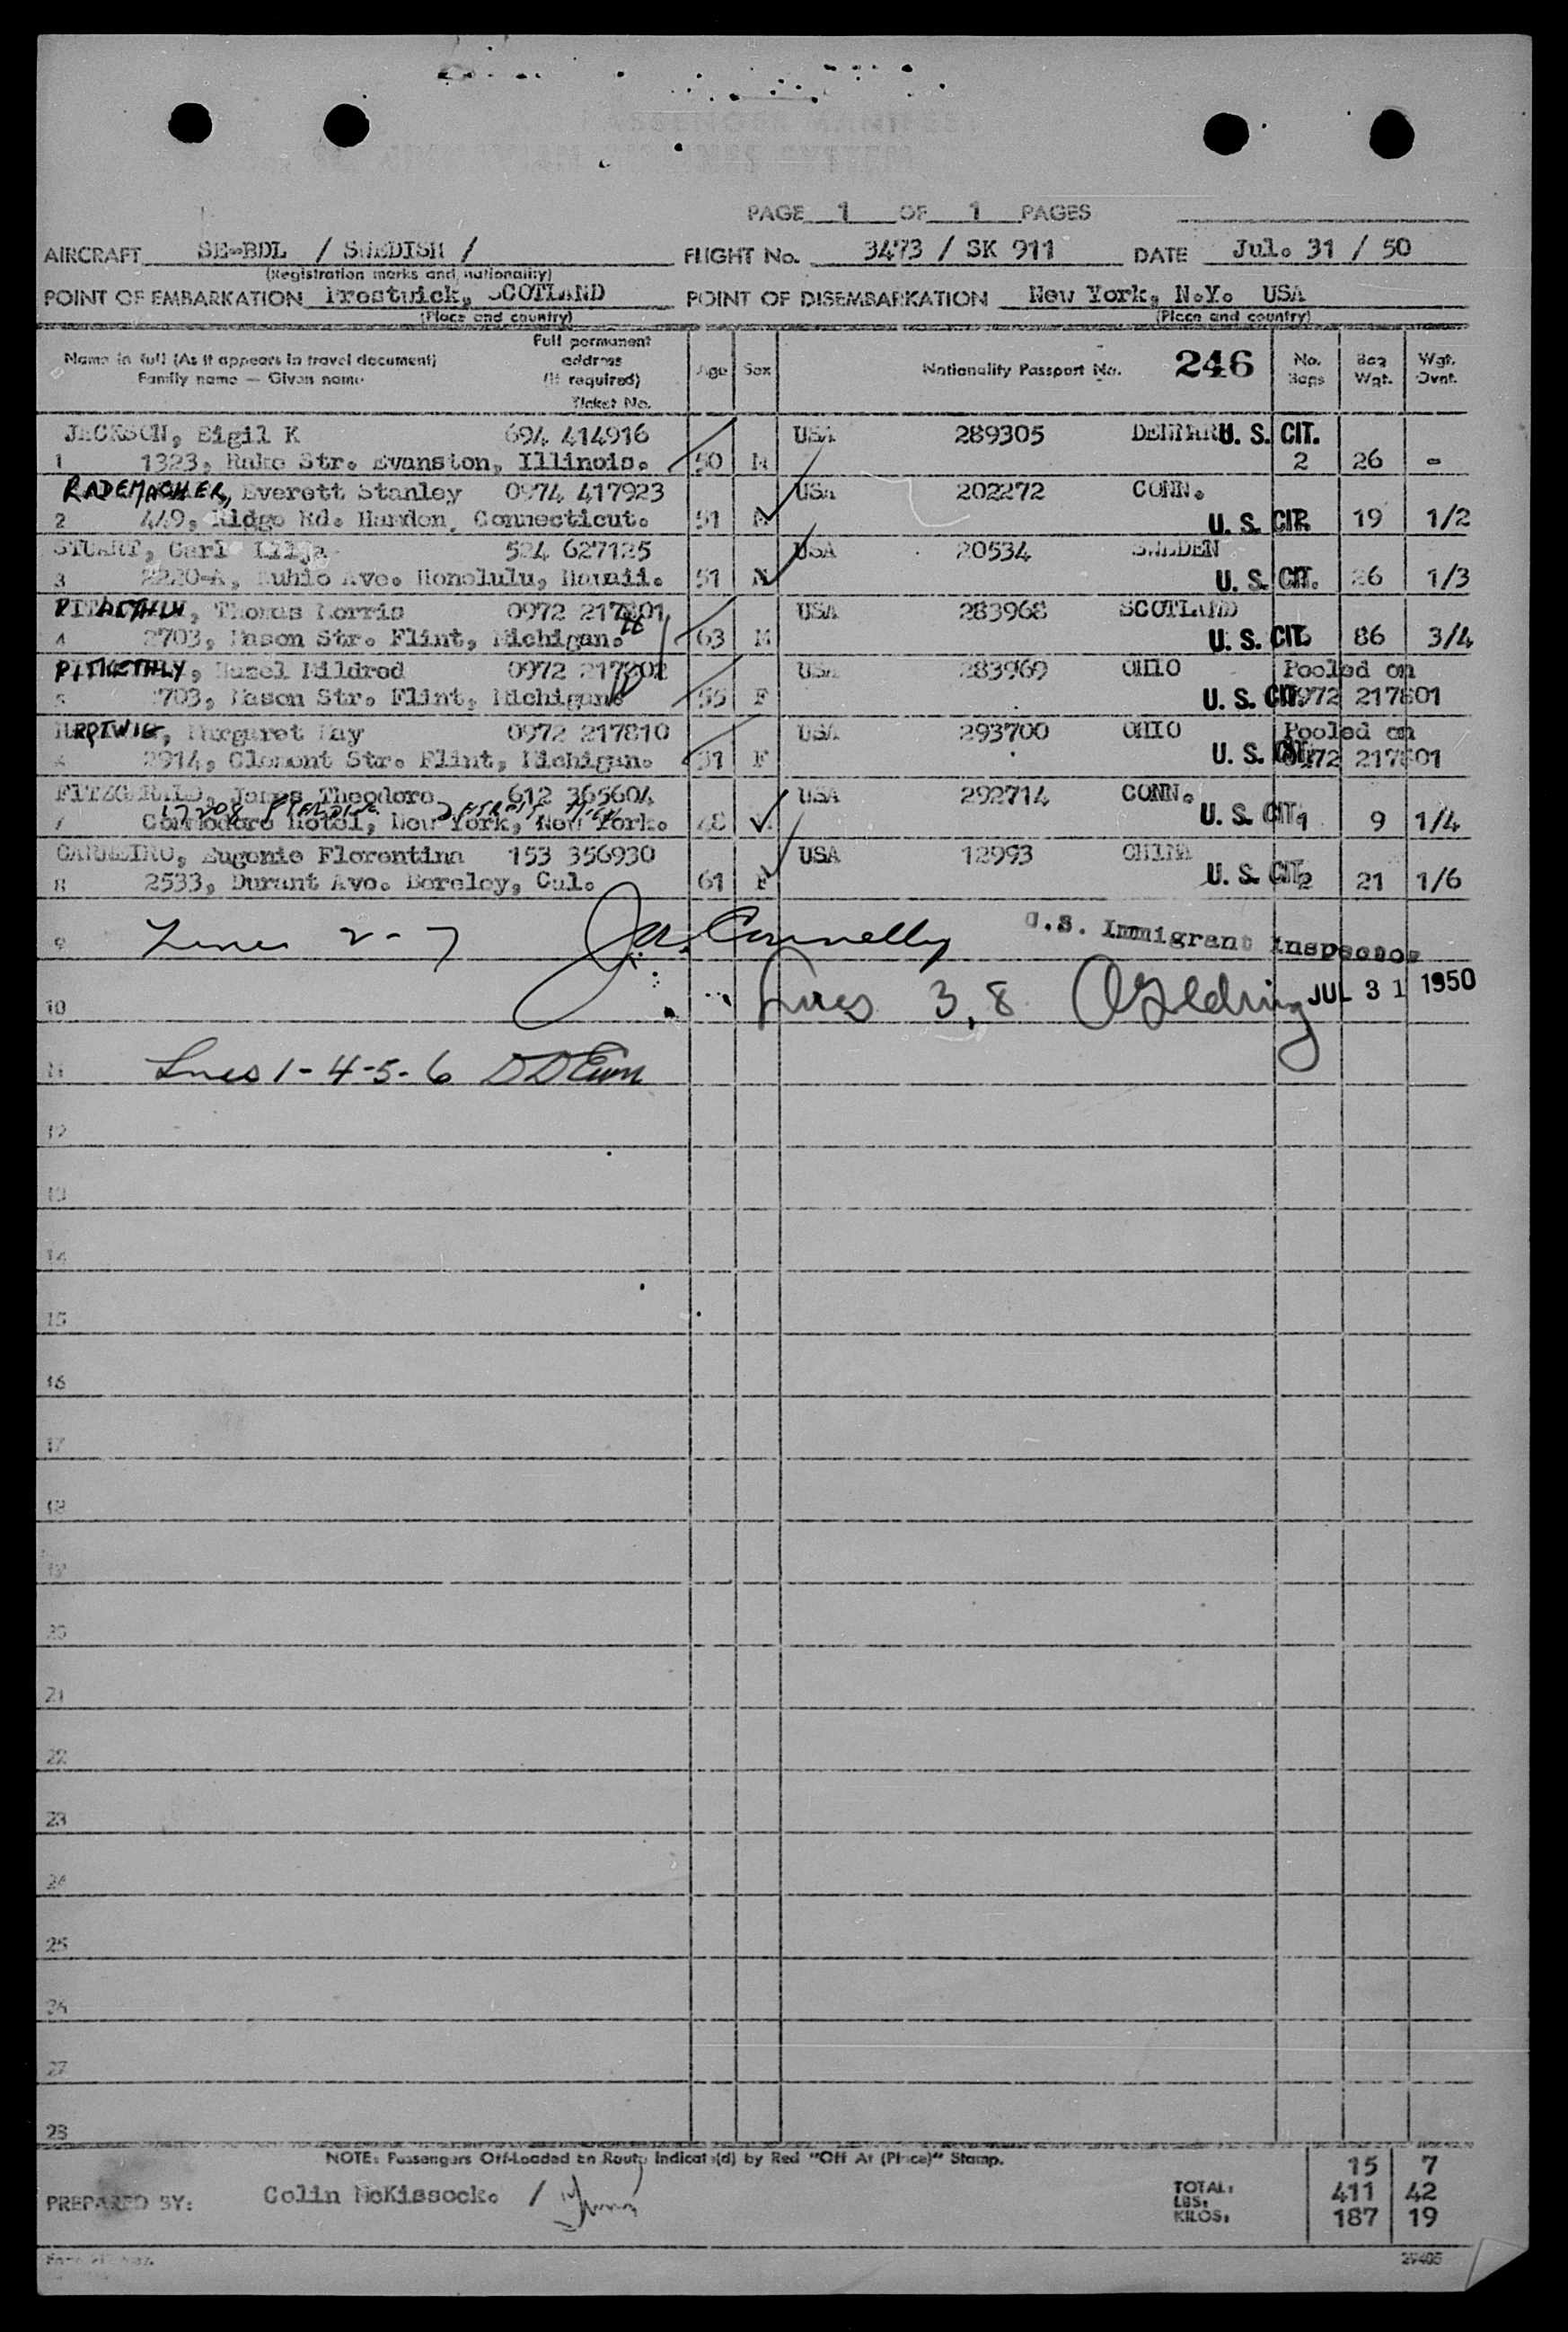 PASSENGER MANIFEST
PAGE 1 OF 1 PAGES
AIRCRAFT SE-BDL / SWEDISH / FLIGHT No. 3473 / SK 911 DATE Jul. 31 / 50
(Registration marks and nationality)
POINT OF EMBARKATION Prestwick, SCOTLAND POINT OF DISEMBARKATION New York, N.Y. USA
(Place and country) (Place and country)
Name in full (As it appears in travel document) Family name — Given name Full permanent address (If required) Ticket No. Age Sex Nationality Passport No. 246 No. Bags Bag Wgt. Wgt. Ovnt.
JACKSON, Eigil K 694 414916 USA 289305 DENMARK U. S. CIT.
1 1323, Rake Str. Evanston, Illinois. 50 M 2 26 -
RADEMACHER, Everett Stanley 0974 417923 USA 202272 CONN.
2 449, Ridge Rd. Hamden, Connecticut. 51 M U. S. CIT. 19 1/2
STUART, Carl Lilja 524 627125 USA 20534 SWEDEN
3 2220-A, Kuhio Ave. Honolulu, Hawaii. 51 M U. S. CIT. 26 1/3
Thomas Morris 0972 217801 USA 283968 SCOTLAND
4 2703, Mason Str. Flint, Michigan. 63 M U. S. CIT. 86 3/4
PITKETHLY, Hazel Mildred 0972 217802 USA 283969 OHIO Pooled on
5 2703, Mason Str. Flint, Michigan. 55 F U. S. CIT. 0972 217801
HARTWIG, Margaret May 0972 217810 USA 293700 OHIO Pooled on
6 2914, Clement Str. Flint, Michigan. 51 F U. S. CIT. 0972 217801
FITZGERALD, James Theodore 612 365604 USA 292714 CONN.
17208 DETROIT MICH
7 Commodore Hotel, New York, New York. 48 U. S. CIT. 1 9 1/4
CARNEIRO, Eugenie Florentina 153 356930 USA 12993 CHINA
8 2533, Durant Ave. Bereley, Cal. 61 F U. S. CIT. 2 21 1/6
9 Lines 2-7 Connelly U.S. Immigrant Inspector
10 Lines 3, 8 JUL 31 1950
11 Lines 1-4-5-6
12
13
14
15
16
17
18
19
20
21
22
23
24
25
26
27
28
NOTE: Passengers Off-Loaded En Route Indicate(d) by Red "Off At (Place)" Stamp.
15 7
PREPARED BY: Colin McKissock. / TOTAL: LBS: 411 42
KILOS: 187 19
29405